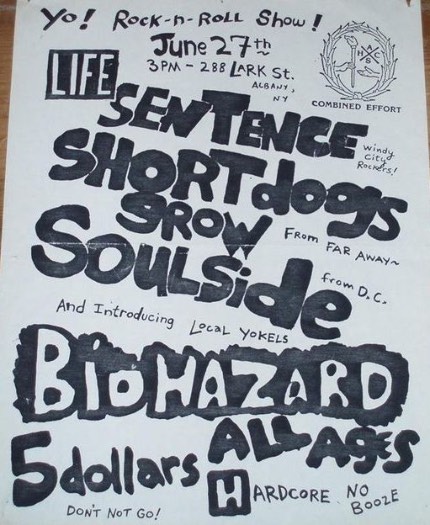 Yo! Rock-n-Roll Show!
June 27th
3PM - 288 Lark St.
Albany,
NY
A
H C
S
COMBINED EFFORT
LIFE
SENTENCE
Windy
City
Rockers!
SHORT dogs
grow
From FAR AWAY~
Soulside
from D.C.
And Introducing Local Yokels
BioHAZARD
5 dollars
ALL Ages
HARDCORE
NO
BOOZE
DON'T NOT GO!